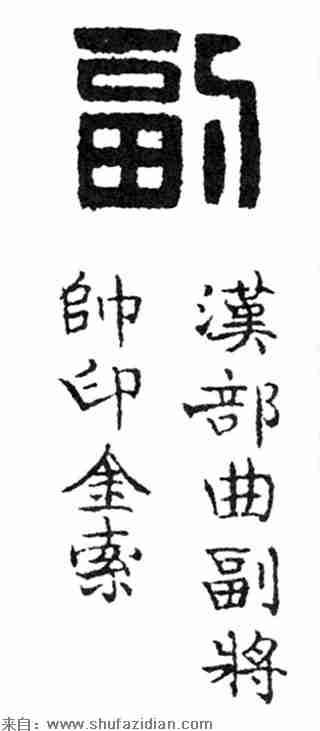 副
漢部曲副將
帥印金索
来自：www.shufazidian.com